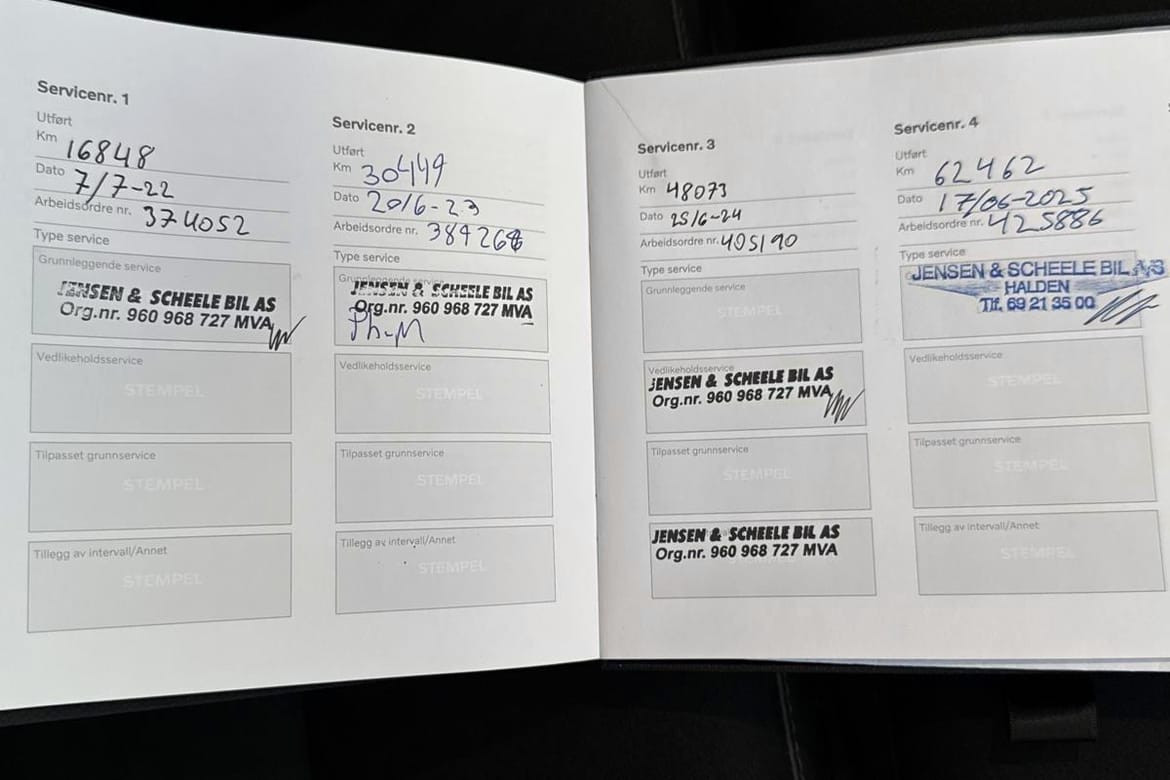 Servicenr. 1
Utført
Km 16848
Dato 7/7-22
Arbeidsordre nr. 374052
Type service
Grunnleggende service
JENSEN & SCHEELE BIL AS
Org.nr. 960 968 727 MVA
Vedlikeholdsservice
STEMPEL
Tilpasset grunnservice
STEMPEL
Tillegg av intervall/Annet
STEMPEL
Servicenr. 2
Utført
Km 30449
Dato 20/6-23
Arbeidsordre nr. 389268
Type service
Grunnleggende service
JENSEN & SCHEELE BIL AS
Org.nr. 960 968 727 MVA
Vedlikeholdsservice
STEMPEL
Tilpasset grunnservice
STEMPEL
Tillegg av intervall/Annet
STEMPEL
Servicenr. 3
Utført
Km 48073
Dato 25/6-24
Arbeidsordre nr. 405190
Type service
Grunnleggende service
STEMPEL
Vedlikeholdsservice
JENSEN & SCHEELE BIL AS
Org.nr. 960 968 727 MVA
Tilpasset grunnservice
STEMPEL
JENSEN & SCHEELE BIL AS
Org.nr. 960 968 727 MVA
Servicenr. 4
Utført
Km 62462
Dato 17/06-2025
Arbeidsordre nr. 425886
Type service
JENSEN & SCHEELE BIL A/S
HALDEN
Tlf. 69 21 35 00
Vedlikeholdsservice
STEMPEL
Tilpasset grunnservice
STEMPEL
Tillegg av intervall/Annet
STEMPEL